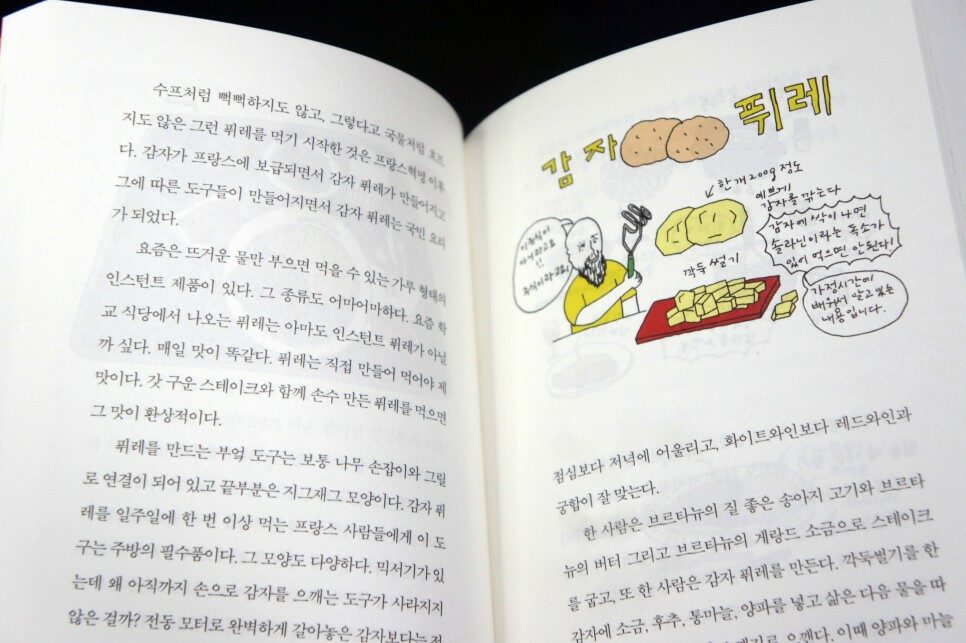 수프처럼 뻑뻑하지도 않고, 그렇다고 국물처럼 흐르
지도 않은 그런 퓌레를 먹기 시작한 것은 프랑스혁명 이후
다. 감자가 프랑스에 보급되면서 감자 퓌레가 만들어지고
그에 따른 도구들이 만들어지면서 감자 퓌레는 국민 요리
가 되었다.
요즘은 뜨거운 물만 부으면 먹을 수 있는 가루 형태의
인스턴트 제품이 있다. 그 종류도 어마어마하다. 요즘 학
교 식당에서 나오는 퓌레는 아마도 인스턴트 퓌레가 아닐
까 싶다. 매일 맛이 똑같다. 퓌레는 직접 만들어 먹어야 제
맛이다. 갓 구운 스테이크와 함께 손수 만든 퓌레를 먹으면
그 맛이 환상적이다.
퓌레를 만드는 부엌 도구는 보통 나무 손잡이와 그릴
로 연결이 되어 있고 끝부분은 지그재그 모양이다. 감자 퓌
레를 일주일에 한 번 이상 먹는 프랑스 사람들에게 이 도
구는 주방의 필수품이다. 그 모양도 다양하다. 믹서기가 있
는데 왜 아직까지 손으로 감자를 으깨는 도구가 사라지지
않은 걸까? 전동 모터로 완벽하게 갈아놓은 감자보다는 적
감자 퓌레
한 개 200g 정도
예쁘게
감자를 깎는다
감자에 싹이 나면
솔라닌이라는 독소가
있어 먹으면 안된다!
깍둑 썰기
가정시간에
배워서 알고 있는
내용입니다.
점심보다 저녁에 어울리고, 화이트와인보다 레드와인과
궁합이 잘 맞는다.
한 사람은 브르타뉴의 질 좋은 송아지 고기와 브르타
뉴의 버터 그리고 브르타뉴의 게랑드 소금으로 스테이크
를 굽고, 또 한 사람은 감자 퓌레를 만든다. 깍둑썰기를 한
감자에 소금, 후추, 통마늘, 양파를 넣고 삶은 다음 물을 따
으깬다. 이때 양파와 마늘